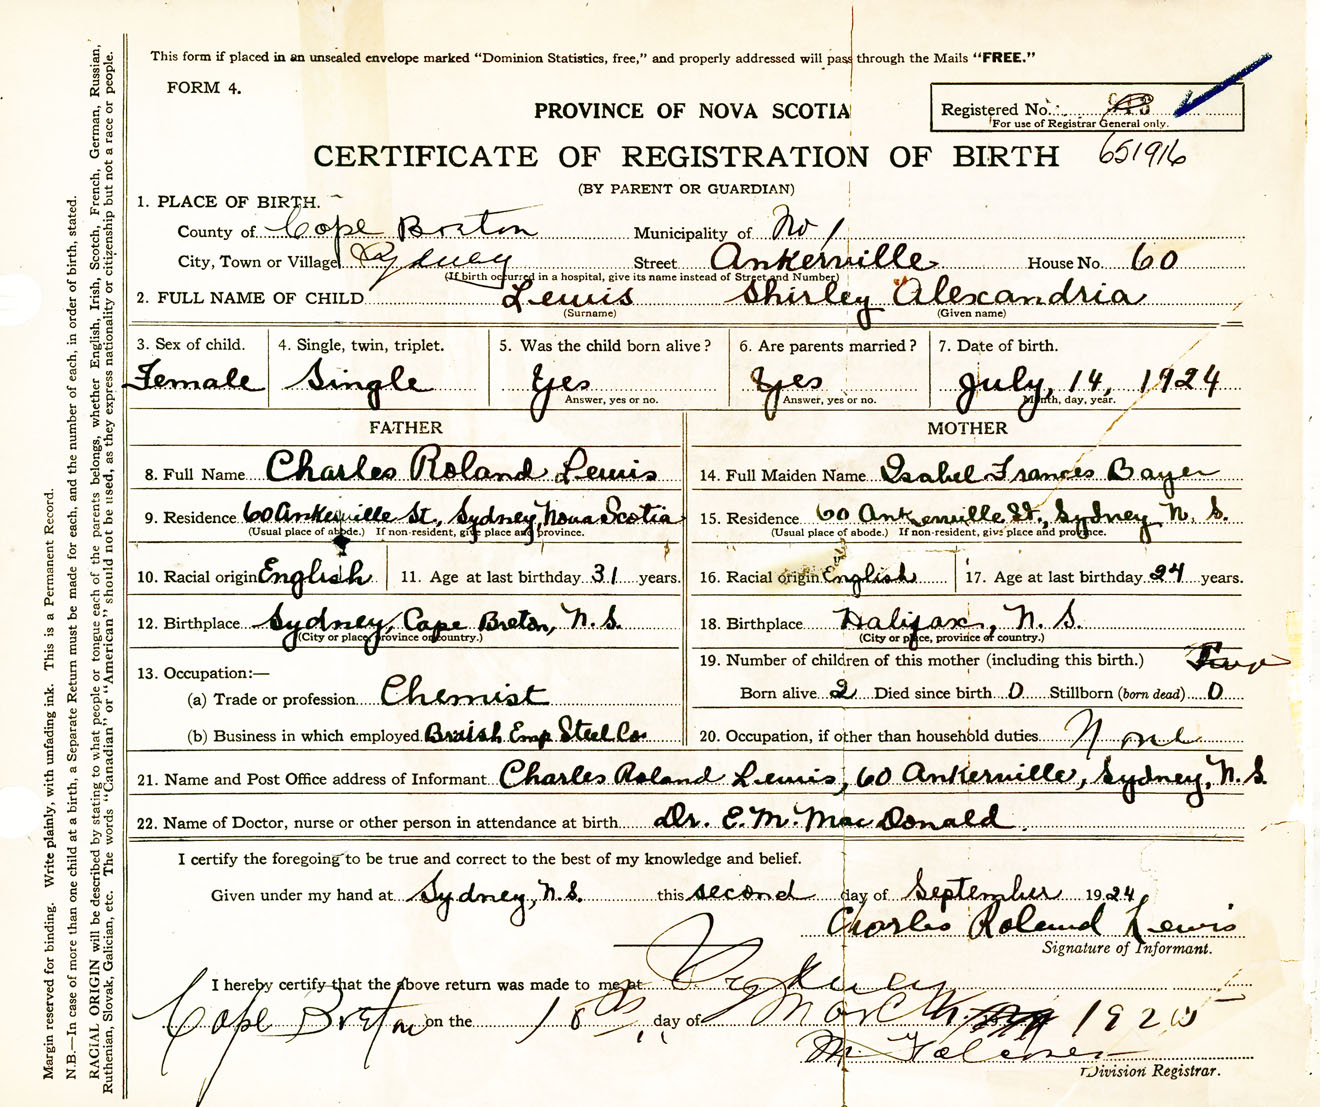 This form if placed in an unsealed envelope marked "Dominion Statistics, free," and properly addressed will pass through the Mails "FREE."
FORM 4.
PROVINCE OF NOVA SCOTIA
Registered No.
For use of Registrar General only.
651916
CERTIFICATE OF REGISTRATION OF BIRTH
(BY PARENT OR GUARDIAN)
1. PLACE OF BIRTH.
County of Cape Breton Municipality of No 1
City, Town or Village Sydney Street Ankerville House No. 60
(If birth occurred in a hospital, give its name instead of Street and Number)
2. FULL NAME OF CHILD Lewis Shirley Alexandria
(Surname) (Given name)
3. Sex of child. 4. Single, twin, triplet. 5. Was the child born alive? 6. Are parents married? 7. Date of birth.
Female Single Yes Yes July, 14, 1924
Answer, yes or no. Answer, yes or no. Month, day, year.
FATHER
8. Full Name Charles Roland Lewis
9. Residence 60 Ankerville St., Sydney, Nova Scotia
(Usual place of abode.) If non-resident, give place and province.
10. Racial origin English 11. Age at last birthday 31 years.
12. Birthplace Sydney, Cape Breton, N.S.
(City or place, province or country.)
13. Occupation:—
(a) Trade or profession Chemist
(b) Business in which employed British Emp Steel Co.
MOTHER
14. Full Maiden Name Isabel Frances Bayer
15. Residence 60 Ankerville St., Sydney, N. S.
(Usual place of abode.) If non-resident, give place and province.
16. Racial origin English 17. Age at last birthday 24 years.
18. Birthplace Halifax, N. S.
(City or place, province or country.)
19. Number of children of this mother (including this birth.)
Born alive 2 Died since birth 0 Stillborn (born dead) 0
20. Occupation, if other than household duties None
21. Name and Post Office address of Informant Charles Roland Lewis, 60 Ankerville, Sydney, N.S.
22. Name of Doctor, nurse or other person in attendance at birth Dr. E. M. MacDonald
I certify the foregoing to be true and correct to the best of my knowledge and belief.
Given under my hand at Sydney, N.S. this second day of September 1924
Charles Roland Lewis
Signature of Informant.
I hereby certify that the above return was made to me at Sydney
Cape Breton on the 18th day of March 1925
M.
Division Registrar.
Margin reserved for binding. Write plainly, with unfading ink. This is a Permanent Record.
N.B.—In case of more than one child at a birth, a Separate Return must be made for each, and the number of each, in order of birth, stated.
RACIAL ORIGIN will be described by stating to what people or tongue each of the parents belongs, whether English, Irish, Scotch, French, German, Russian,
Ruthenian, Slovak, Galician, etc. The words "Canadian" or "American" should not be used, as they express nationality or citizenship but not a race or people.